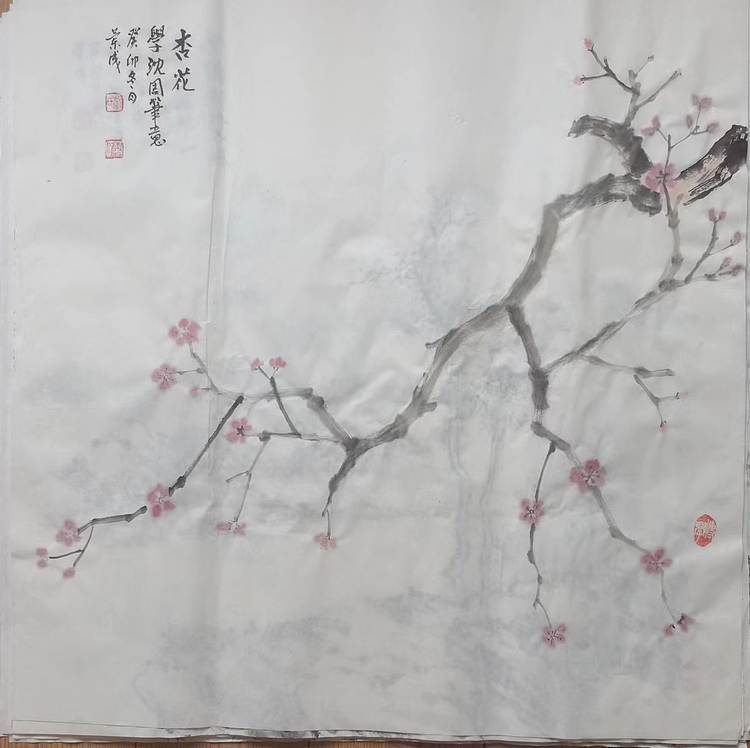 杏花
學沈周筆意
癸卯冬月
景成